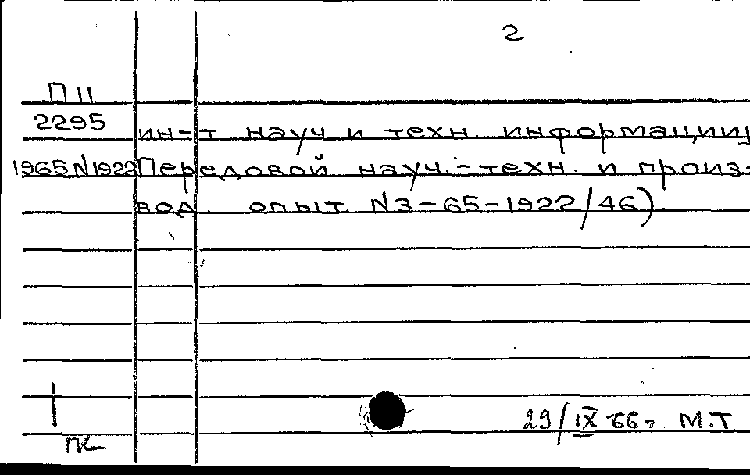 2
П 11
2295
ин-т науч и техн. информации;
1965 N 1922 Передовой науч.-техн. и произ-
вод. опыт. N3-65-1922/46)
29/IX 66. М.Т
пк